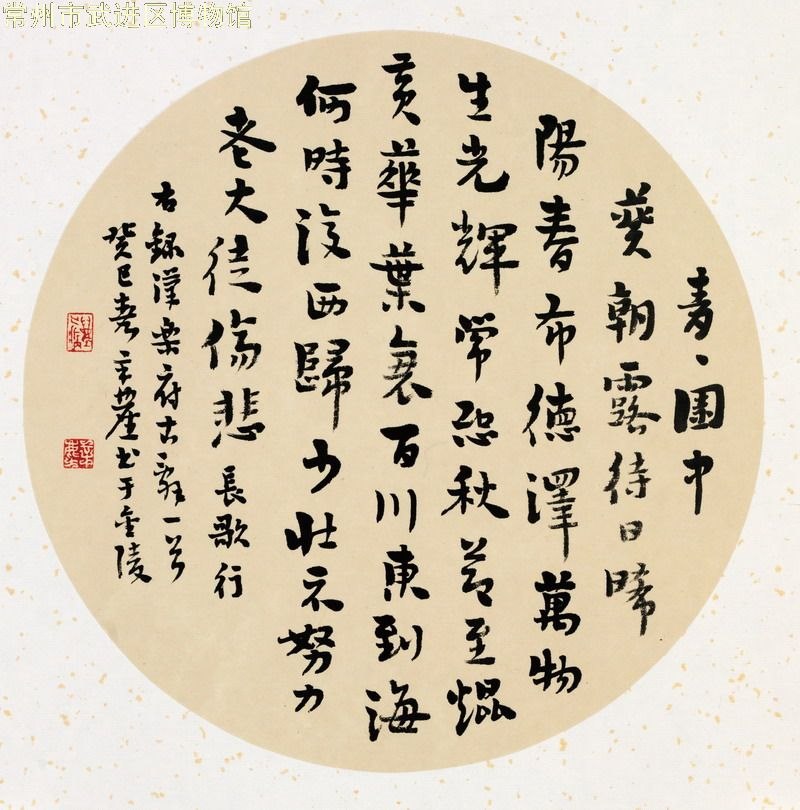 常州市武进区博物馆
青〻園中
葵朝露待日晞
陽春布德澤萬物
生光輝常恐秋節至焜
黃華葉衰百川東到海
何時復西歸少壯不努力
老大徒傷悲 長歌行
右錄漢樂府古辭一首
癸巳春 書于金陵